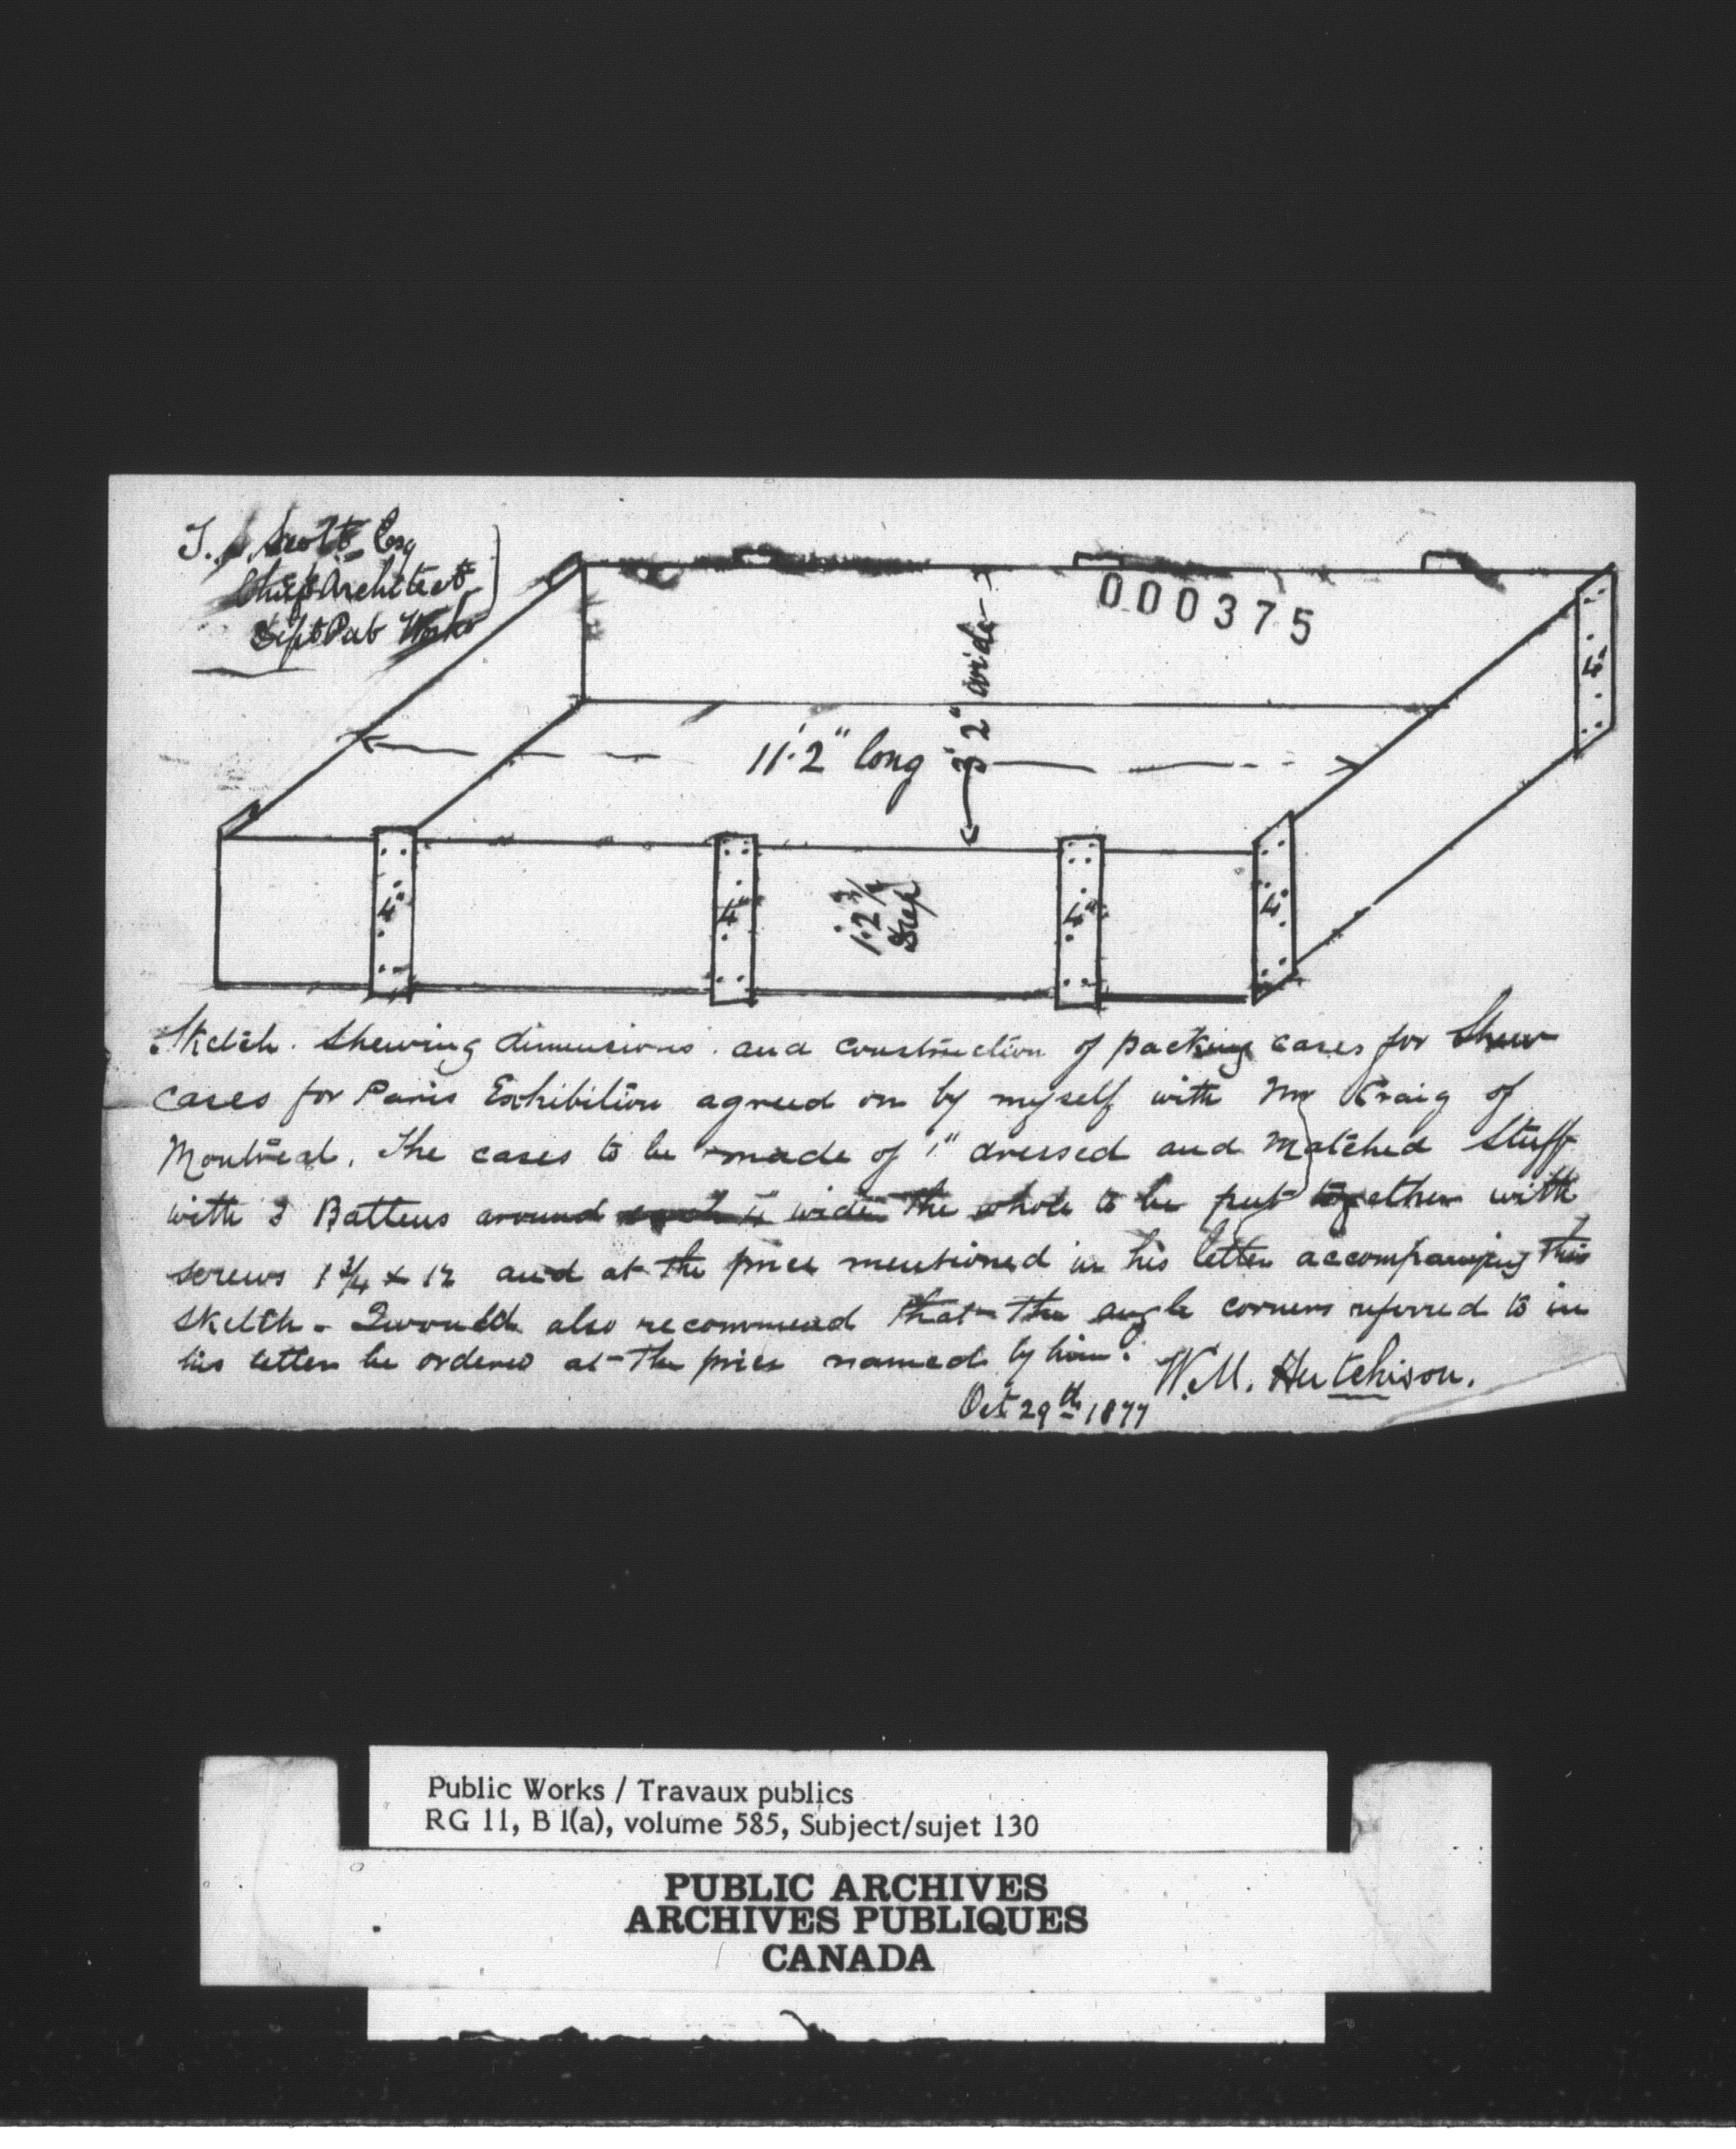 T. S. Scott Esq
Chief Architect
Dept Pub Works
000375
3' 2" wide
11' 2" long
4"
4"
4"
4"
4"
1' 2 3/4
Deep
Sketch. Shewing dimensions and construction of packing cases for Shew
cases for Paris Exhibition agreed on by myself with Mr Craig of
Montreal. The cases to be made of 1" dressed and matched stuff
with 3 Battens around each 4 wide the whole to be put together with
screws 1 3/4 x 12 and at the price mentioned in his letter accompanying this
sketch - I would also recommend that the angle corners referred to in
his letter be ordered at the price named by him.
W. M. Hutchison.
Oct 29th 1877
Public Works / Travaux publics
RG 11, B 1(a), volume 585, Subject/sujet 130
PUBLIC ARCHIVES
ARCHIVES PUBLIQUES
CANADA